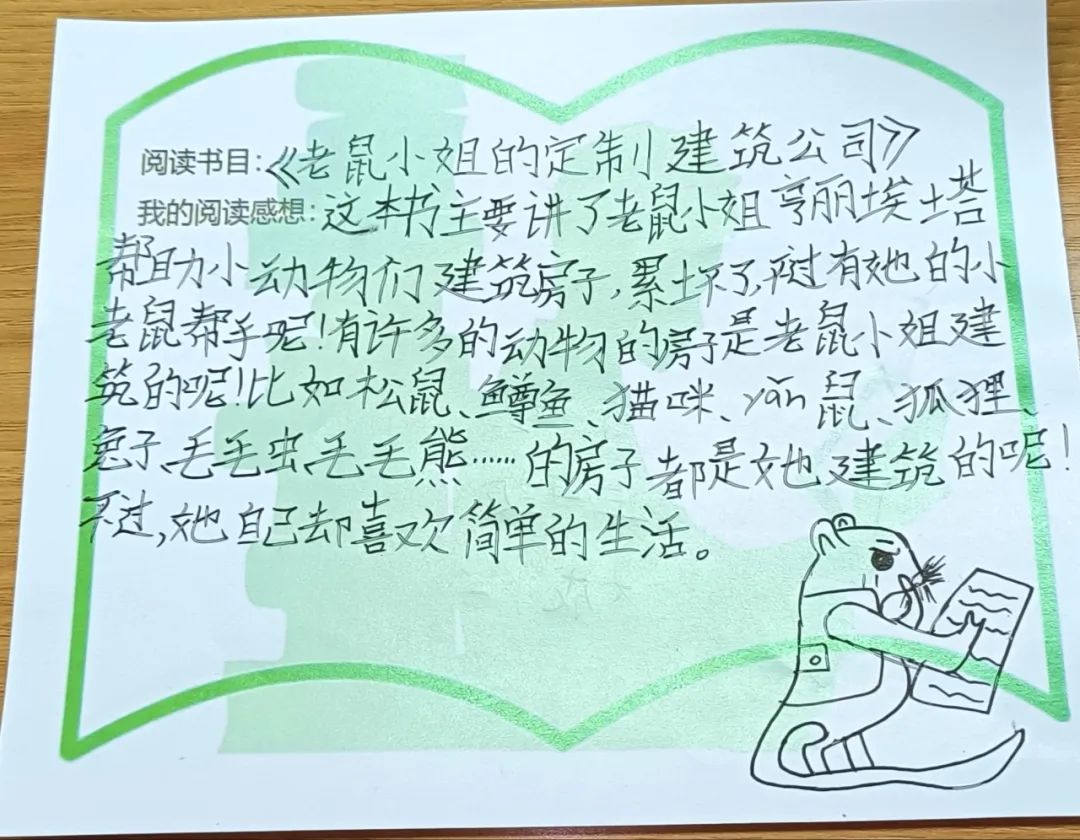 阅读书目:《老鼠小姐的定制小建筑公司》
我的阅读感想:这本书主要讲了老鼠小姐亨丽埃塔
帮助小动物们建筑房子,累坏了,不过有她的小
老鼠帮手呢!有许多的动物的房子是老鼠小姐建
筑的呢!比如松鼠、鳟鱼、猫咪、yǎn鼠、狐狸、
兔子、毛毛虫、毛毛熊……的房子都是她建筑的呢!
不过,她自己却喜欢简单的生活。